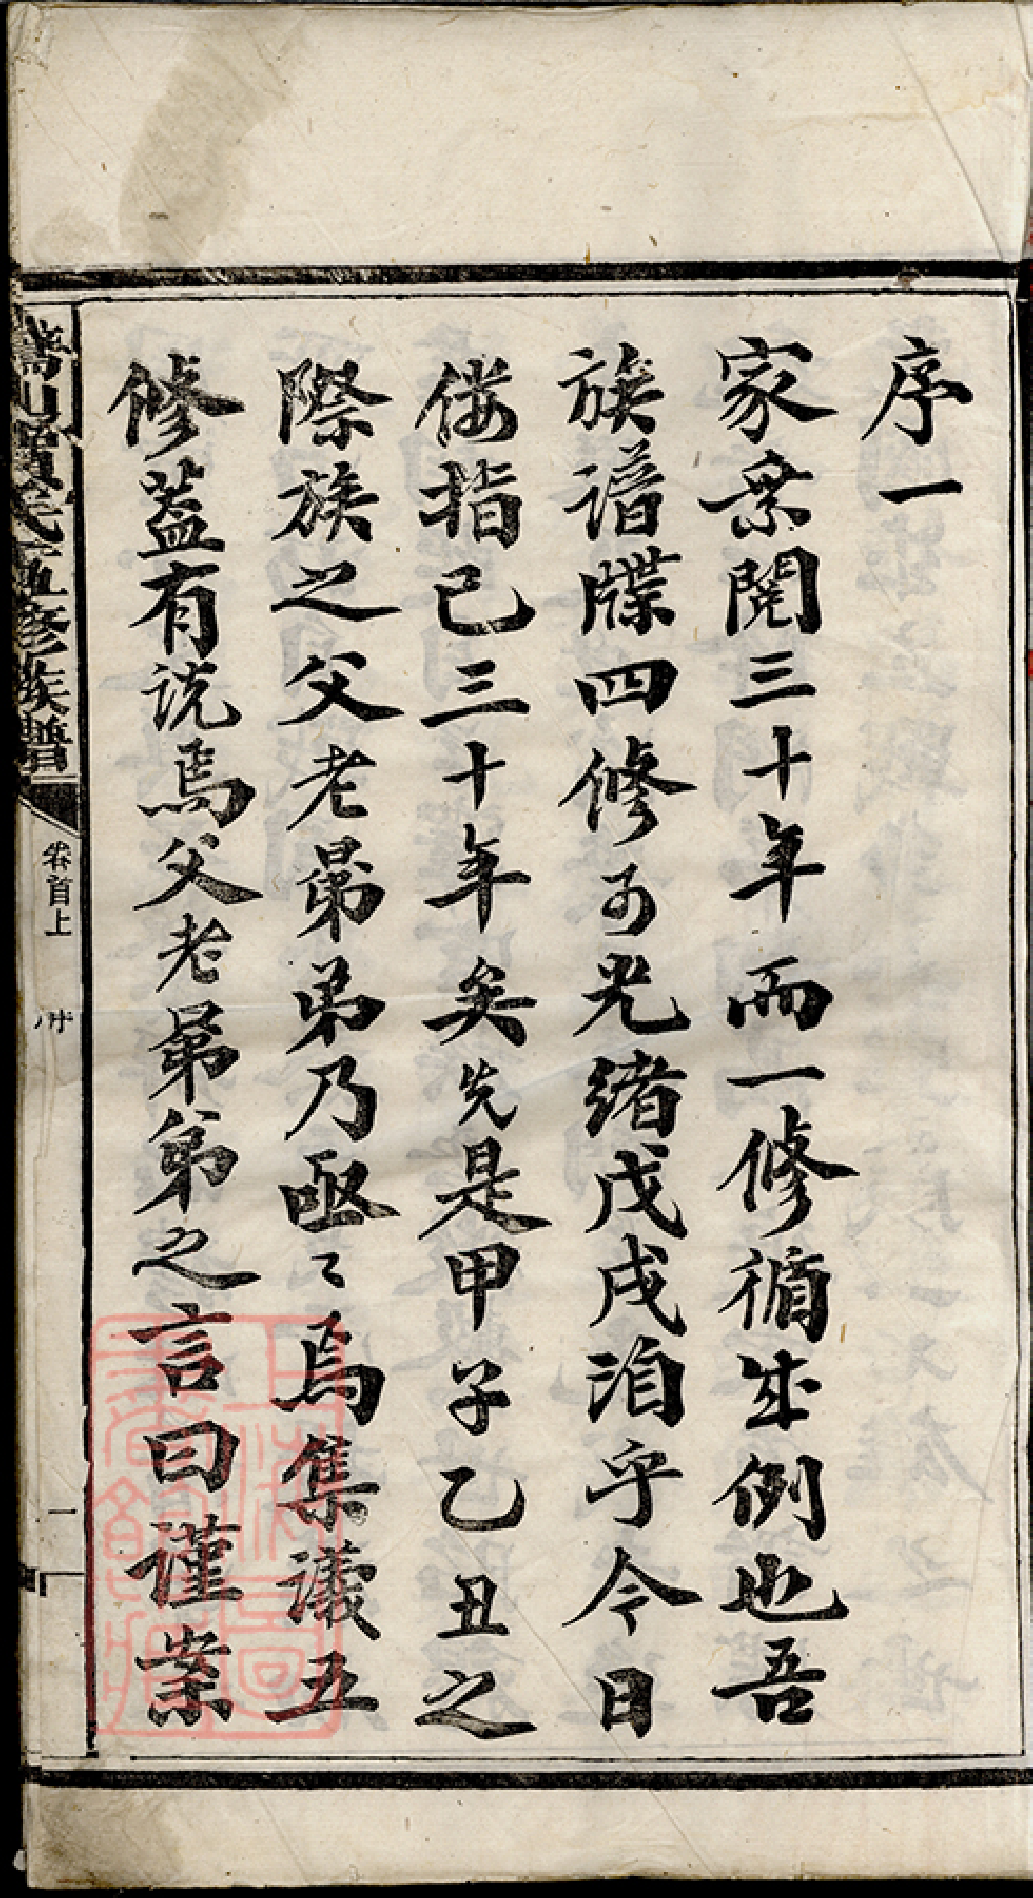 序一
家乘閱三十年而一修循成例也吾
族譜牒四修於光緒戊戌洎乎今日
僂指已三十年矣先是甲子乙丑之
際族之父老昆弟乃亟〻焉集議五
修蓋有說焉父老昆弟之言曰謹案
氏五修族譜
卷首上
一